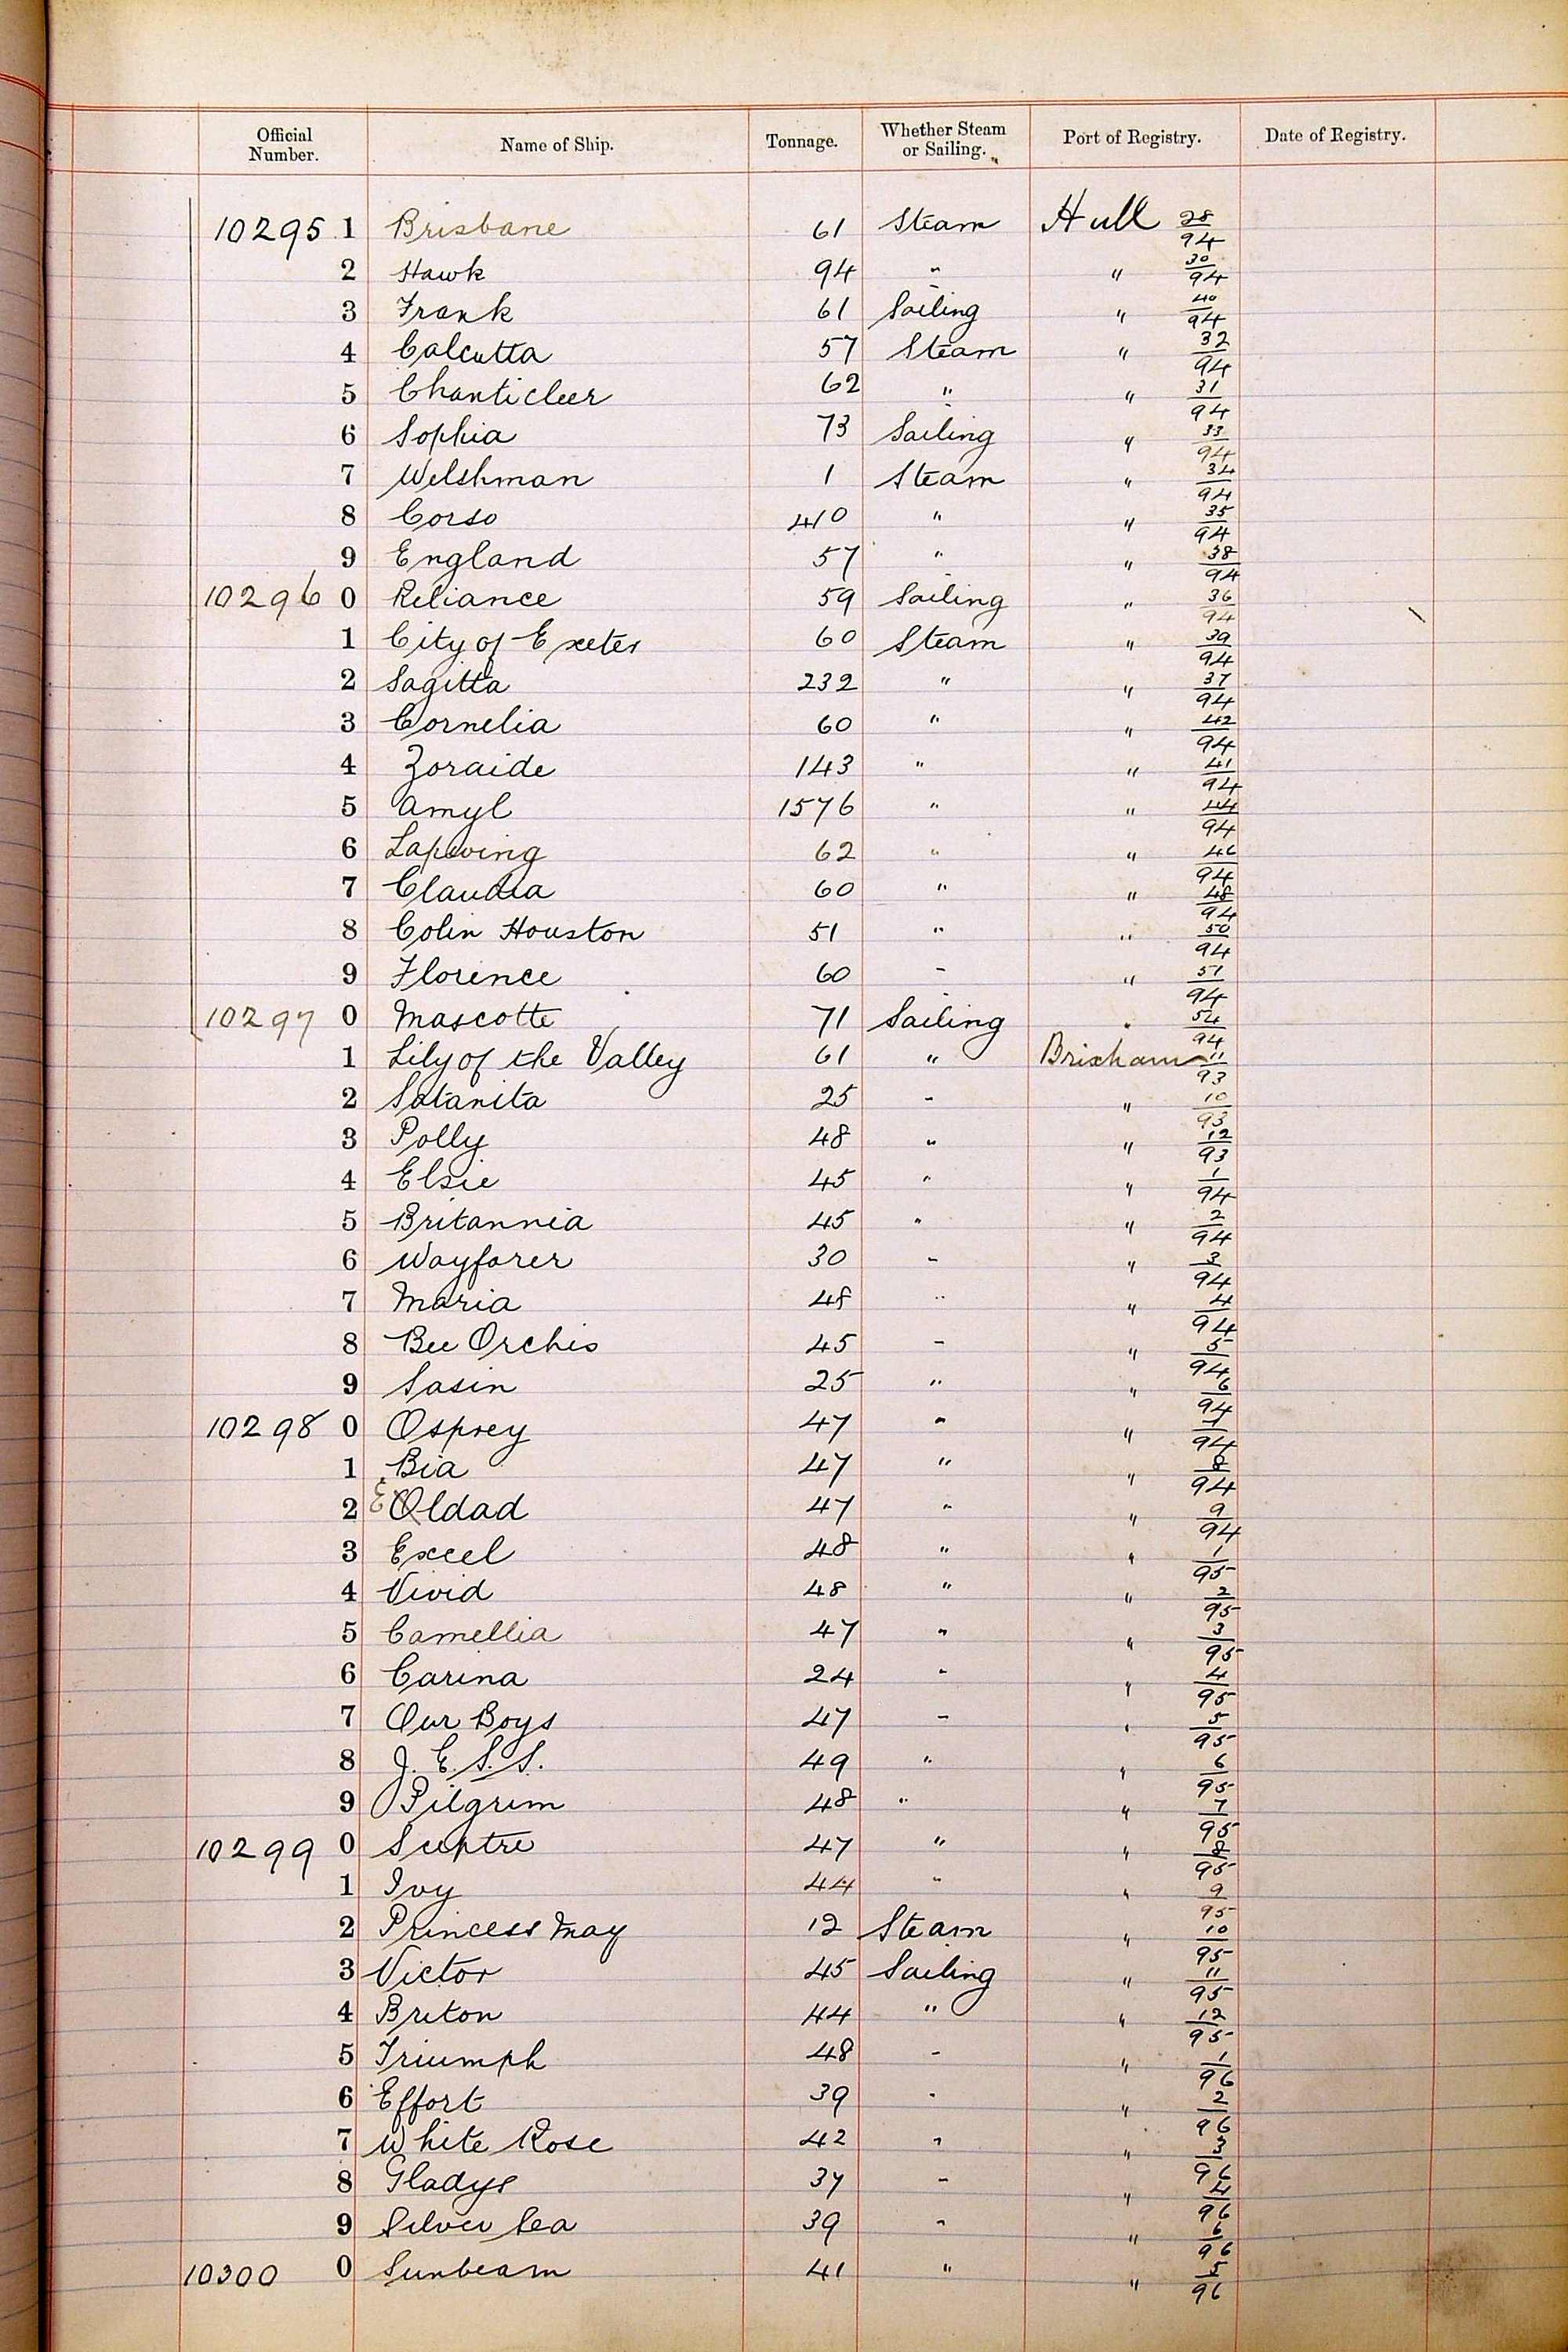 Official Number. Name of Ship. Tonnage. Whether Steam or Sailing. Port of Registry. Date of Registry.
10295 1 Brisbane 61 Steam Hull 28/94
2 Hawk 94 " " 30/94
3 Frank 61 Sailing " 40/94
4 Calcutta 57 Steam " 32/94
5 Chanticleer 62 " " 31/94
6 Sophia 73 Sailing " 33/94
7 Welshman 1 Steam " 34/94
8 Corso 410 " " 35/94
9 England 57 " " 38/94
10296 0 Reliance 59 Sailing " 36/94
1 City of Exeter 60 Steam " 39/94
2 Sagitta 232 " " 37/94
3 Cornelia 60 " " 42/94
4 Zoraide 143 " " 41/94
5 Amyl 1576 " " 44/94
6 Lapwing 62 " " 46/94
7 Claudia 60 " " 48/94
8 Colin Houston 51 " " 50/94
9 Florence 60 " " 51/94
10297 0 Mascotte 71 Sailing " 54/94
1 Lily of the Valley 61 " Brixham 11/93
2 Satanita 25 " " 10/93
3 Polly 48 " " 12/93
4 Elsie 45 " " 1/94
5 Britannia 45 " " 2/94
6 Wayfarer 30 " " 3/94
7 Maria 48 " " 4/94
8 Bee Orchis 45 " " 5/94
9 Sasin 25 " " 6/94
10298 0 Osprey 47 " " 7/94
1 Bia 47 " " 8/94
2 Eldad 47 " " 9/94
3 Excel 48 " " 1/95
4 Vivid 48 " " 2/95
5 Camellia 47 " " 3/95
6 Carina 24 " " 4/95
7 Our Boys 47 " " 5/95
8 J. E. S. S. 49 " " 6/95
9 Pilgrim 48 " " 7/95
10299 0 Sceptre 47 " " 8/95
1 Ivy 44 " " 9/95
2 Princess May 12 Steam " 10/95
3 Victor 45 Sailing " 11/95
4 Briton 44 " " 12/95
5 Triumph 48 " " 1/96
6 Effort 39 " " 2/96
7 White Rose 42 " " 3/96
8 Gladys 37 " " 4/96
9 Silver Sea 39 " " 6/96
10300 0 Sunbeam 41 " " 5/96